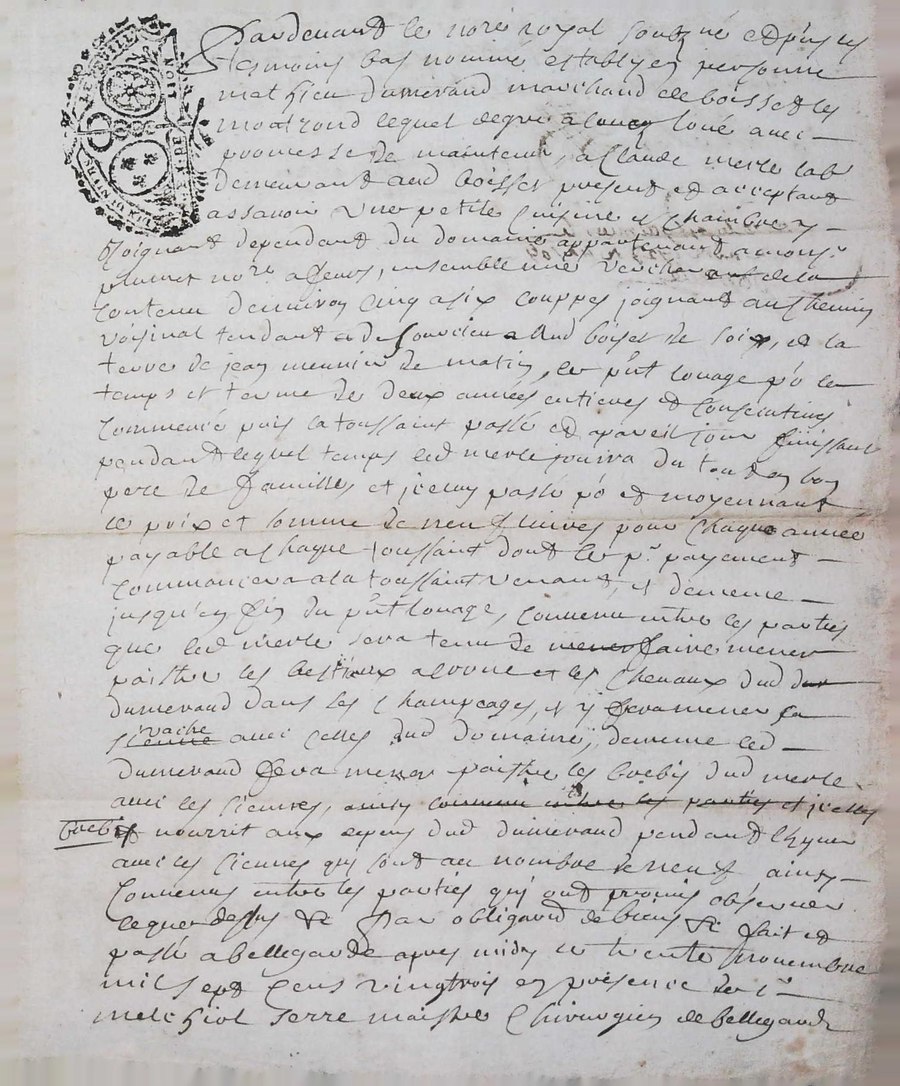 Pardevant le nore royal soubzné et pnts les
tesmoins bas nommé estably en personne
mathieu dumerand marchand de boisset les
montrond lequel de gré a loué loué avec
promesse de maintenir, a Claude merle lab
demeurant aud boisset present et acceptant
assavoir une petite cuisine et Chambre y
joignant dependant du domaine appartenant a monsr
nore a feurs, ensemble une de la
contenu denviron cinq a six couppes joignant au chemin
voisinal tendant de aud boiset de soir, et la
terre de jean meunier de matin, le pnt louage po le
temps et terme de deux années entieres et consecutives
commencé puis la toussaint passé et a pareil jour finissant
pendant lequel temps led merle jouira du tout en bon
pere de famille et iceluy passé po et moyennant
le prix et somme de neuf livres pour chaque année
payable a chaque toussaint dont le pr payement
commancera a la toussaint venant, et de meme
jusqu'en fin du pnt louage, convenu entre les parties
que led merle sera tenu de mener faire mener
paistre les bestiaux et les chevaux dud du
dumerand dans les champeages, et y fera mener sa
vache
sienne avec celles dud domaine, de meme led
dumerand fera mener paistre les brebis dud merle
avec les siennes, ainsy convenu entre les parties et icelles
brebis nourrit aux depens dud dumerand pendant lhyver
avec les siennes qui sont au nombre de neuf ainsy
convenus entre les parties qui ont promis observer
le que dessus &c par obligaon de biens &c fait et
passé a bellegarde apres midy le trente novembre
mil sept cens vingtrois en presence de sr
melchiol serre maistre chirurgien de bellegarde